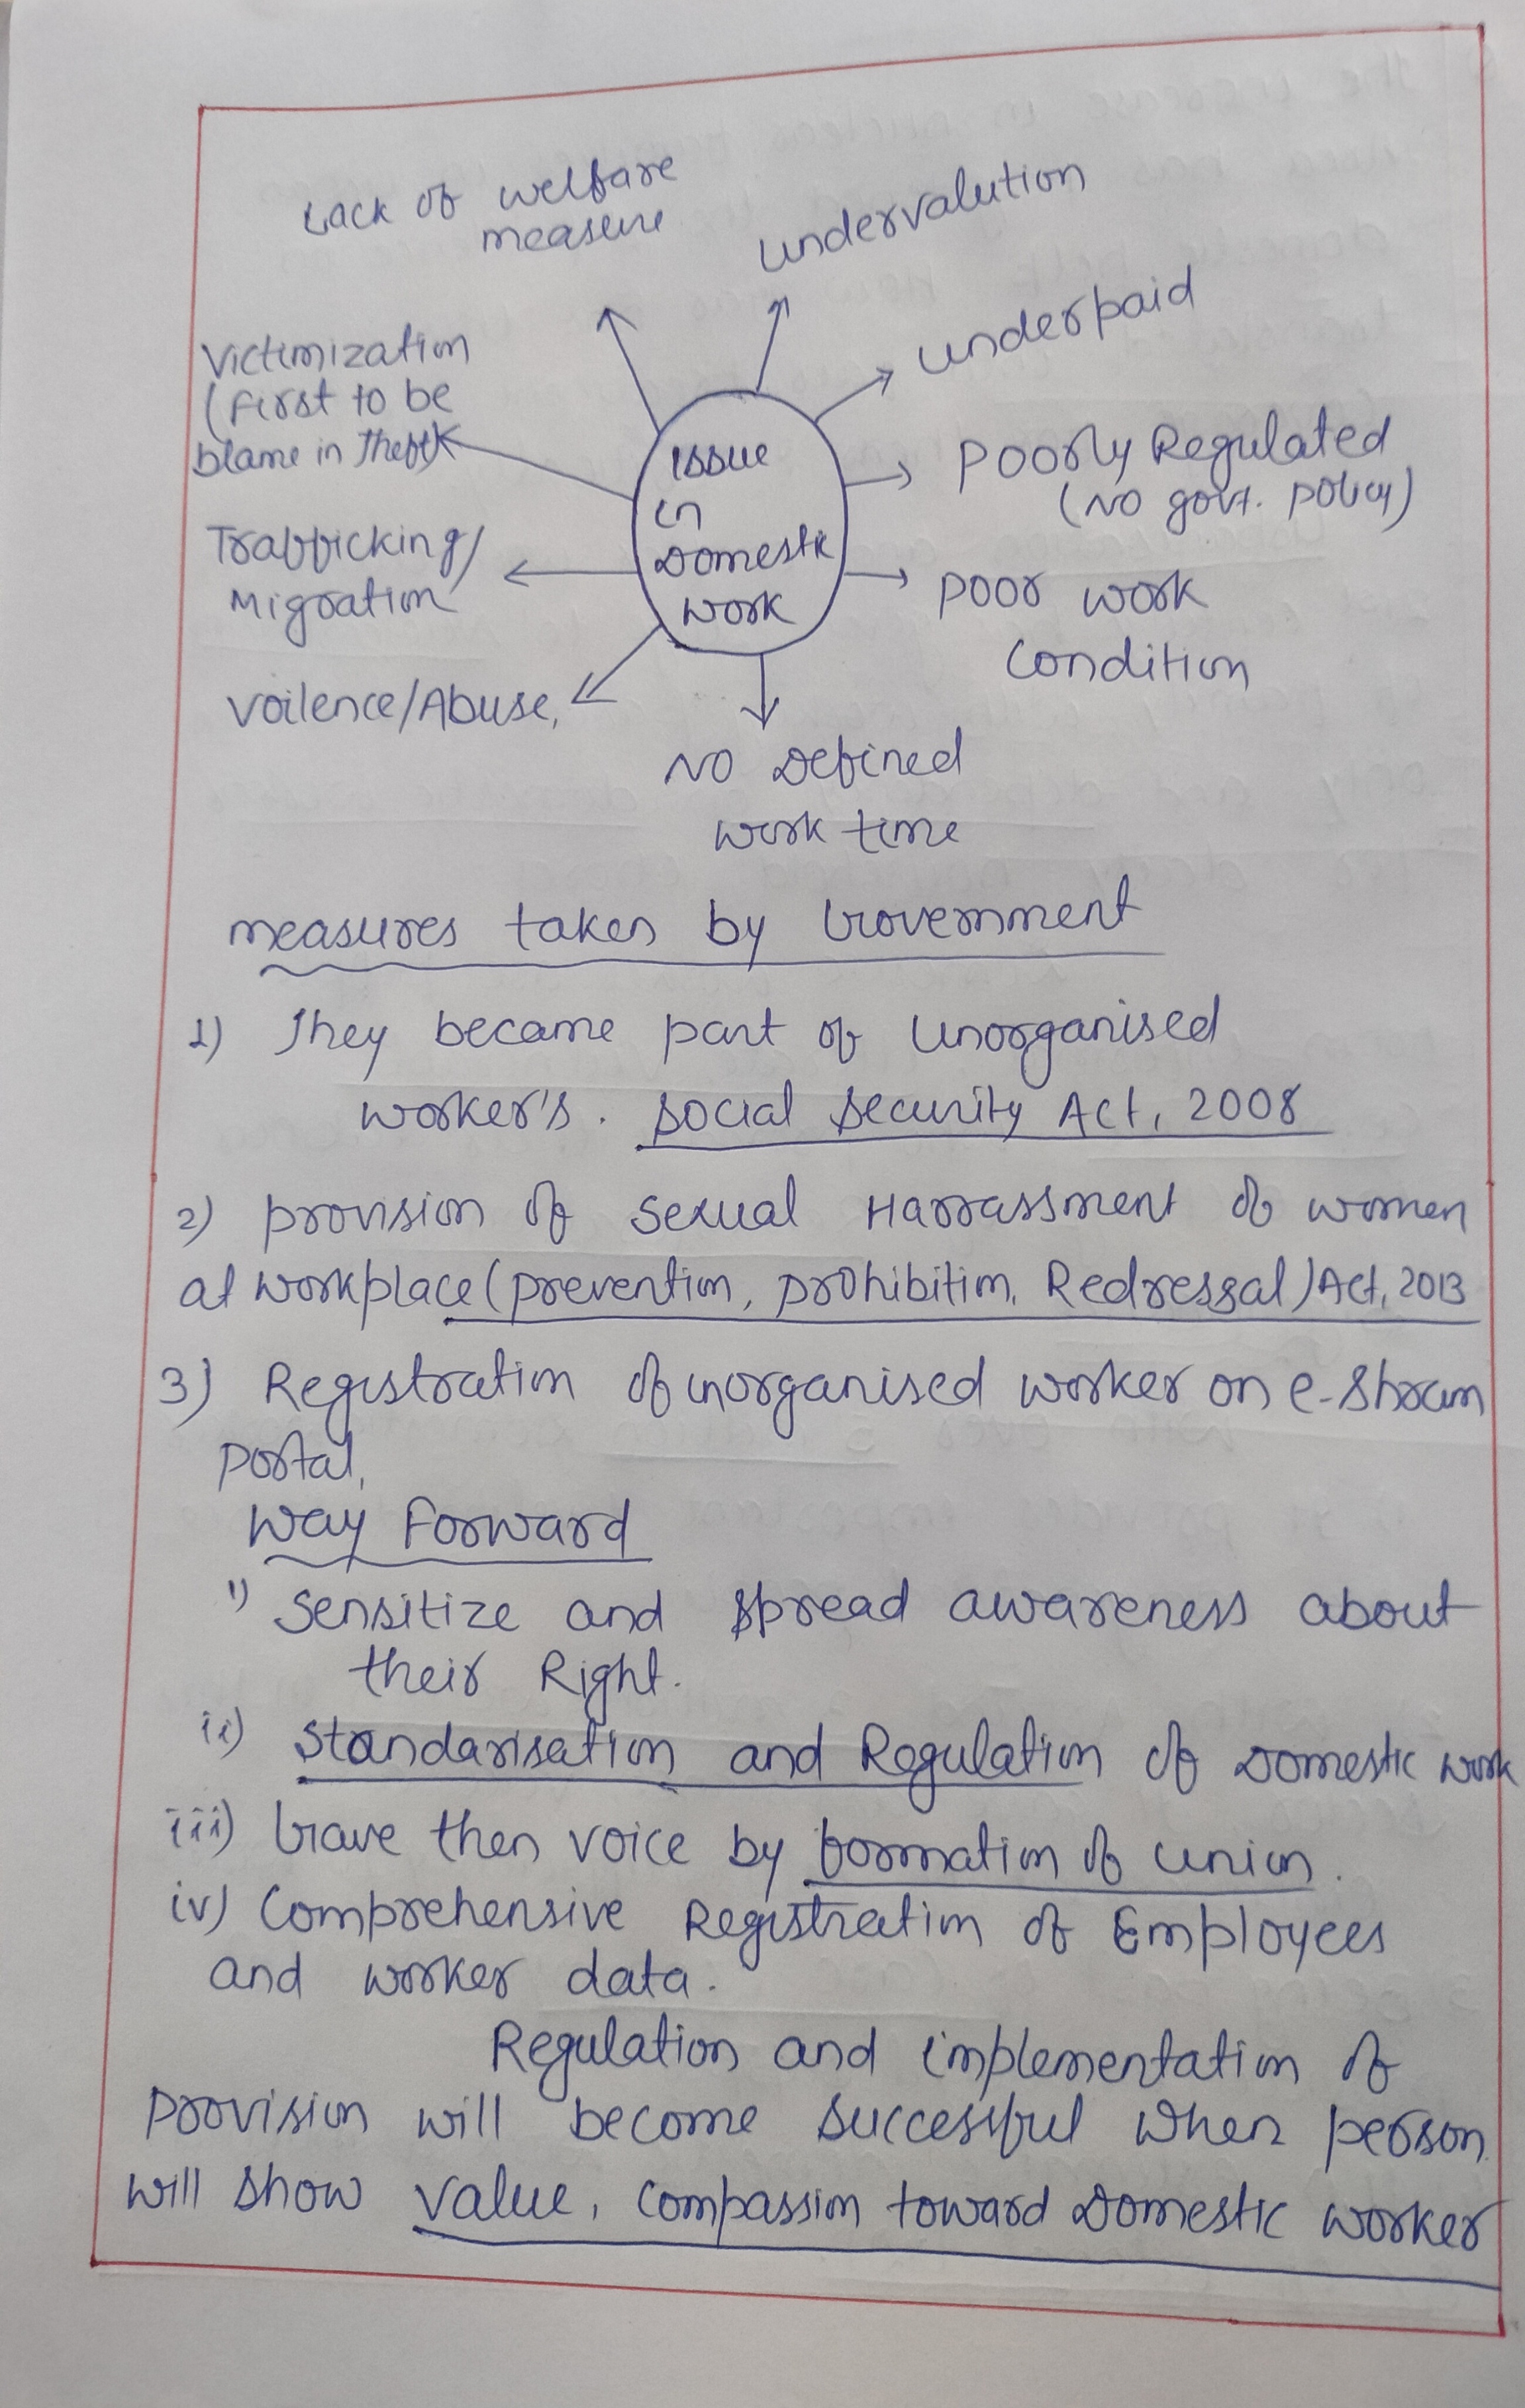 Lack of welfare
measure
undervalution
underpaid
Victimization
(First to be
blame in Theft)
Poorly Regulated
(No govt. policy)
Issue
in
Domestic
work
Trafficking/
Migration
Poor work
Condition
Voilence/Abuse,
No Defined
work time
measures taken by Government
1) They became part of Unorganised
worker's. Social Security Act, 2008
2) provision of Sexual Harrassment of women
at workplace (prevention, prohibition, Redressal) Act, 2013
3) Registration of unorganised worker on e-Shram
Portal,
Way Forward
i) Sensitize and spread awareness about
their Right.
ii) Standarisation and Regulation of Domestic work
iii) Gave then voice by formation of union.
iv) Comprehensive Registration of Employees
and worker data.
Regulation and implementation of
provision will become successful when person
will show value, compassion toward Domestic worker